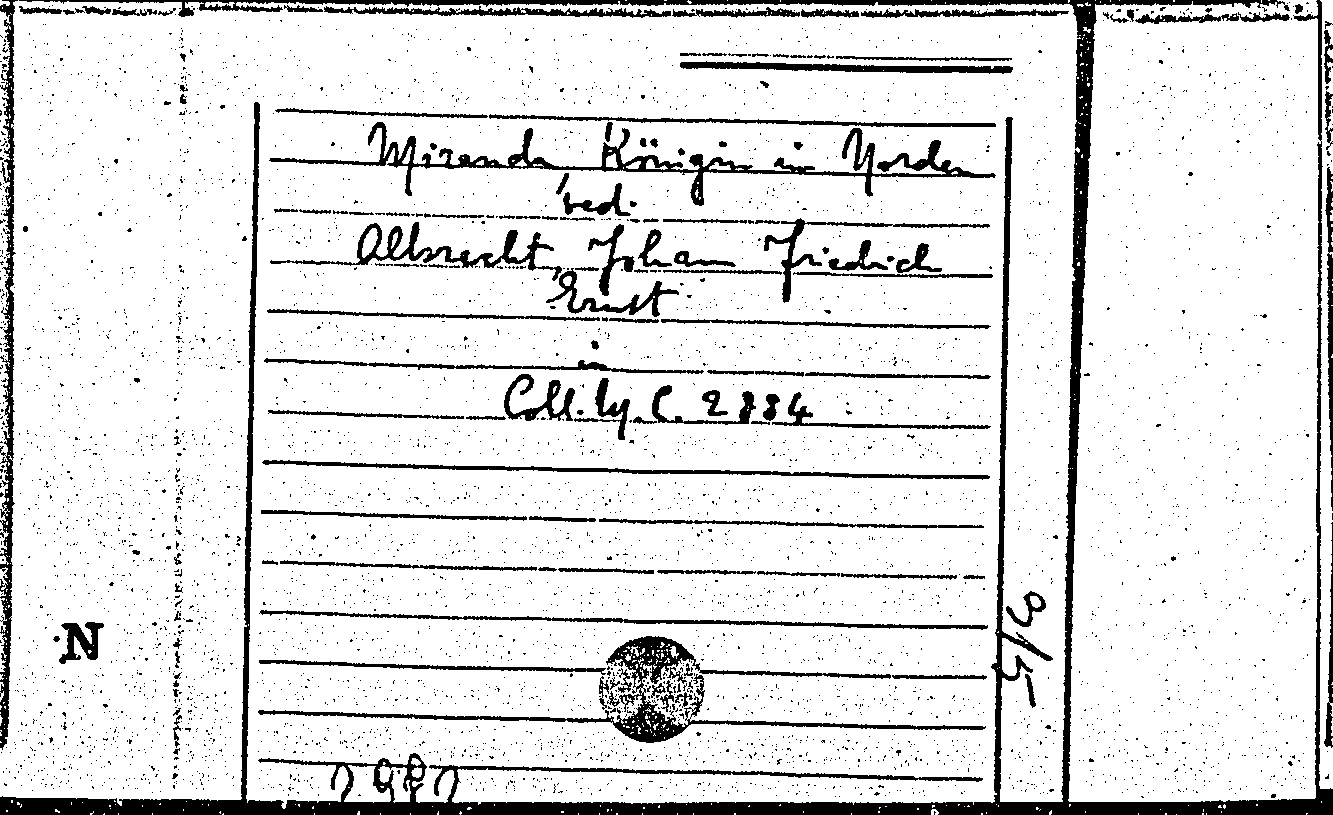 Miranda Königin in Norden
red.
Albrecht, Johann Friedrich
Ernst
in
Coll. ly. C. 2884
N